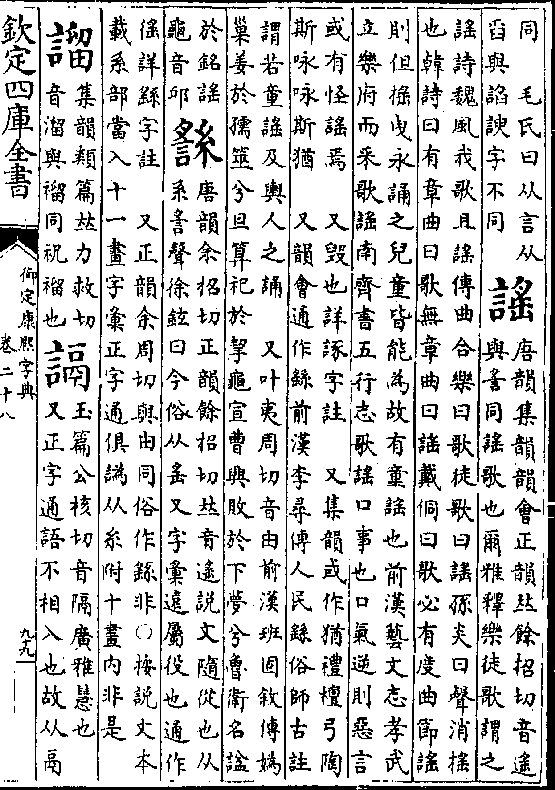 同　毛氏曰从言从
䍃與諂諛字不同
謡
唐韻集韻韻會正韻𠀤餘招切音遙
與䚻同謡歌也爾雅釋樂徒歌謂之
謡詩魏風我歌且謡傳曲合樂曰歌徒歌曰謡孫炎曰聲消搖
也韓詩曰有章曲曰歌無章曲曰謡戴侗曰歌必有度曲節謡
則但搖曳永誦之兒童皆能為故有童謡也前漢藝文志孝武
立樂府而采歌謡南齊書五行志歌謡口事也口氣逆則惡言
或有怪謡焉　又毀也詳諑字註　又集韻或作猶禮檀弓陶
斯咏咏斯猶　又韻會通作繇前漢李尋傳人民繇俗師古註
謂若童謡及輿人之誦　又叶夷周切音由前漢班固敘傳媯
巢姜於孺筮兮旦算祀於挈龜宣曹興敗於下夢兮魯衛名諡
於銘謡
龜音邱
䌛
唐韻余招切正韻餘招切𠀤音遙說文隨從也从
系䚻聲徐鉉曰今俗从䍃又字彙遠屬役也通作
徭詳繇字註　又正韻余周切與由同俗作繇非○按說文本
載系部當入十一畫字彙正字通俱譌从糸附十畫内非是
集韻類篇𠀤力救切
音溜與䄂同祝䄂也
玉篇公核切音隔廣雅慧也
又正字通語不相入也故从鬲
欽定四庫全書
御定康熙字典
卷二十八
九十九